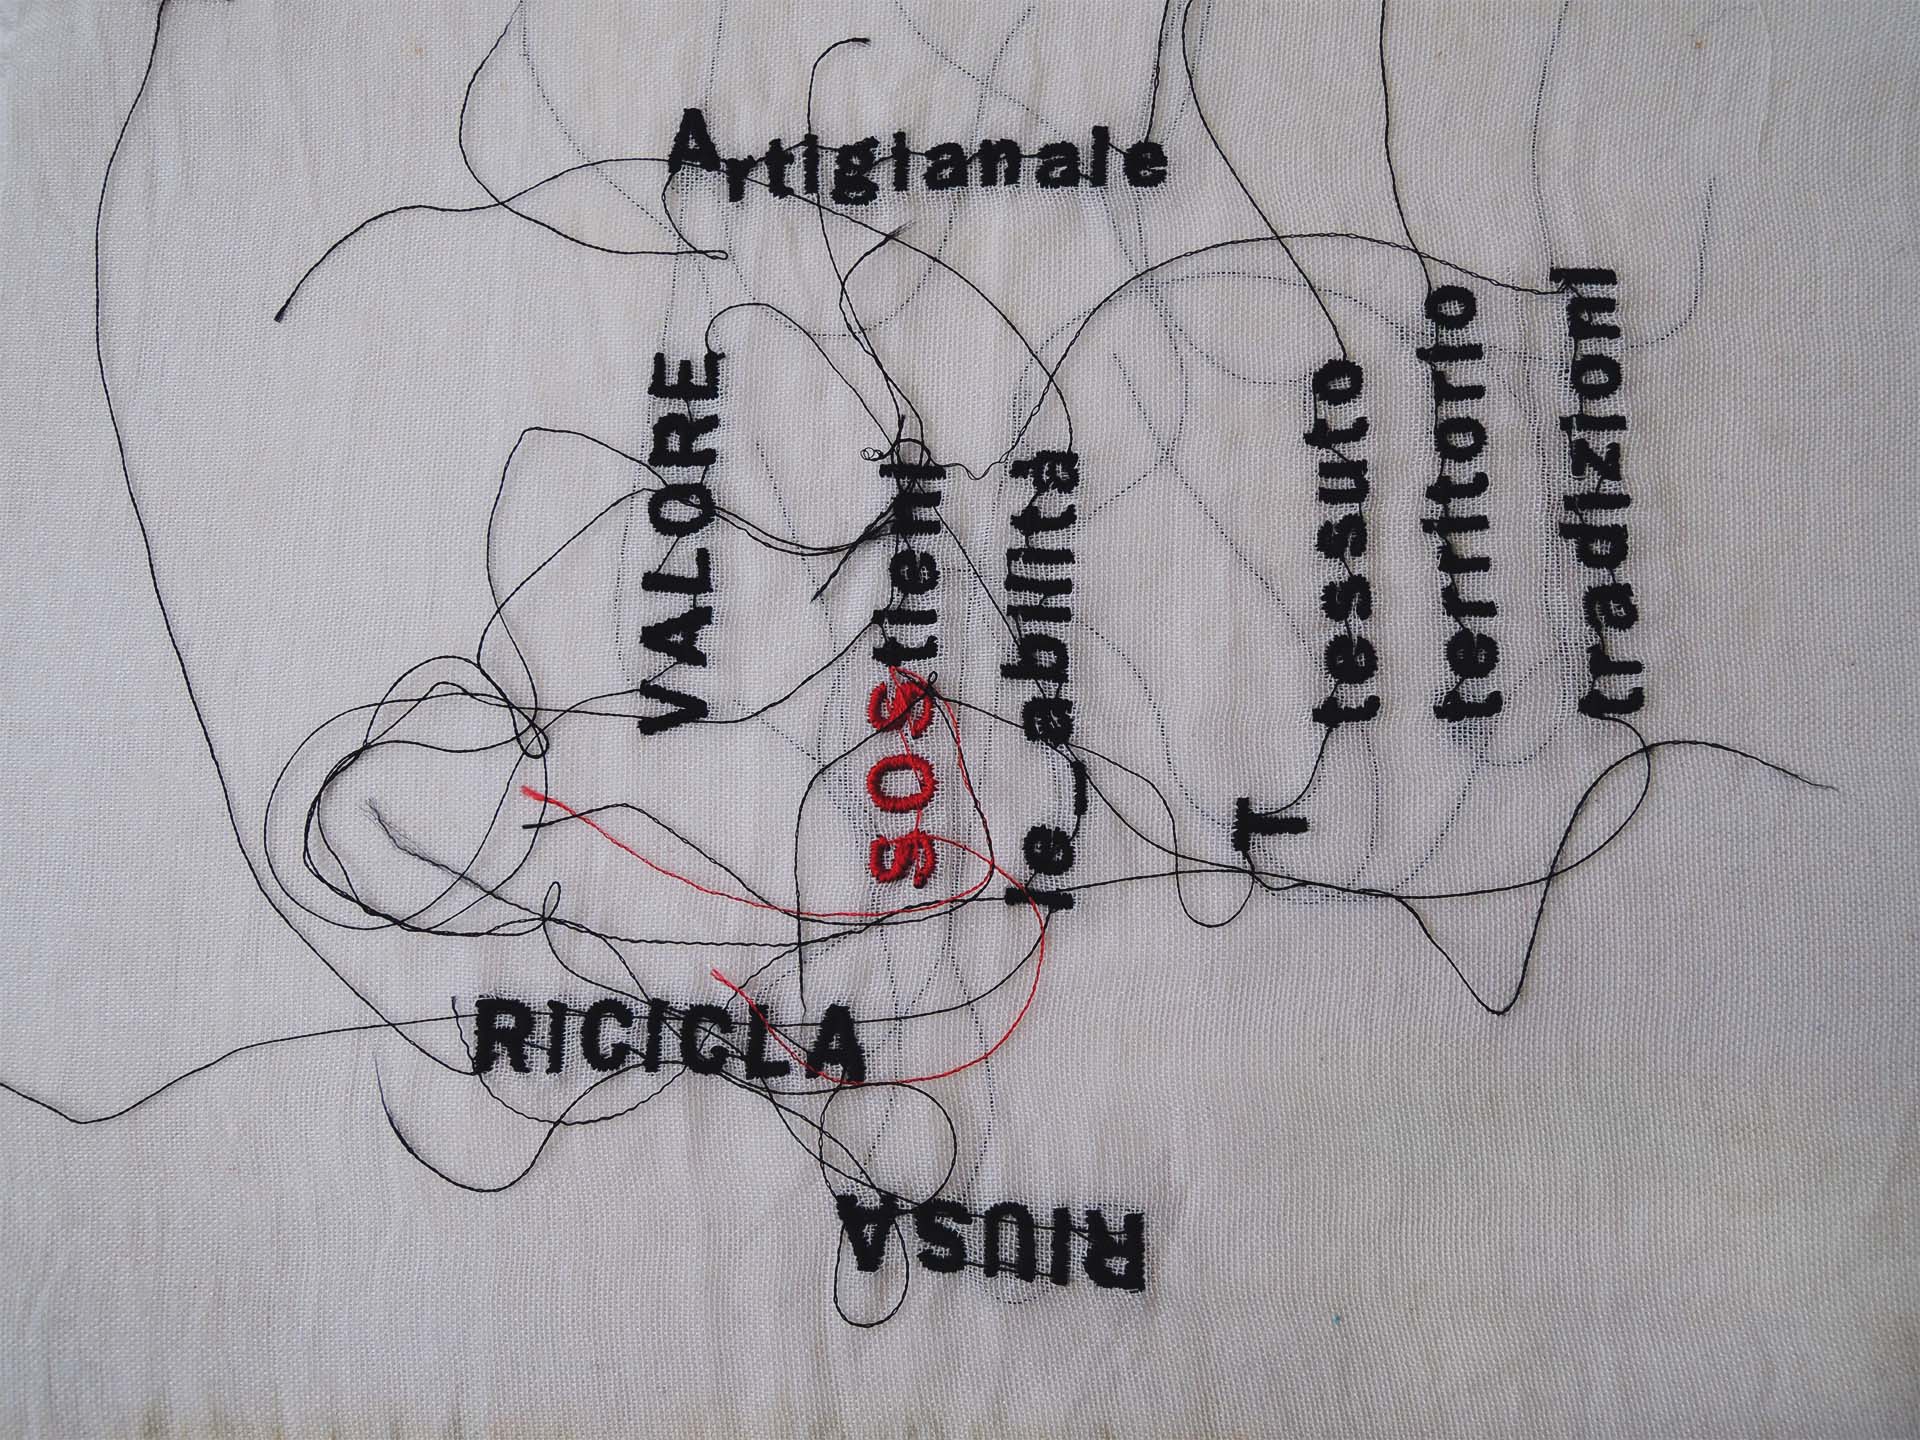 Artigianale
VALORE
SOStieni
re_abilità
T
tessuto
territorio
tradizioni
RICICLA
RIUSA